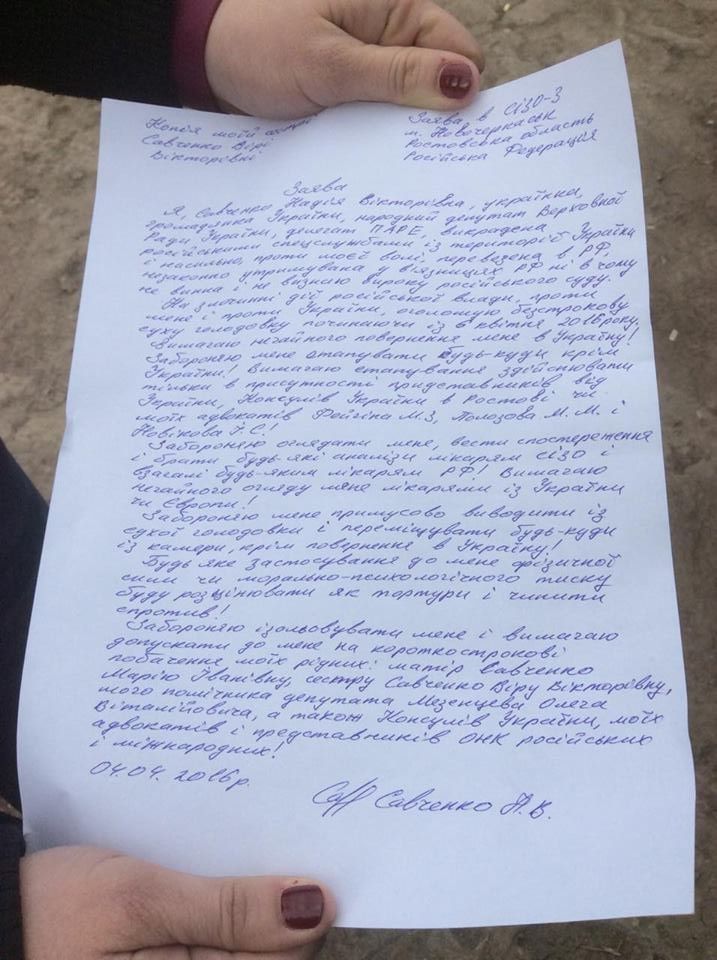 Копія моїй сестрі
Савченко Вірі
Вікторівні
Заява в СІЗО-3
м. Новочеркаськ
Ростовська область
Російська Федерація
Заява
Я, Савченко Надія Вікторівна, українка,
громадянка України, народний депутат Верховної
Ради України, делегат ПАРЕ, викрадена
російськими спецслужбами із території України
і насильно, проти моєї волі, перевезена в РФ,
незаконно утримувана у в'язницях РФ ні в чому
не винна і не визнаю вироку російського суду.
На злочинні дії російської влади, проти
мене і проти України, оголошую безстрокову
суху голодовку починаючи із 6 квітня 2016 року.
Вимагаю негайного повернення мене в Україну!
Забороняю мене етапувати будь-куди, крім
України! Вимагаю етапування здійснювати
тільки в присутності представників від
України, Консулів України в Ростові чи
моїх адвокатів Фейгіна М.З, Полозова М.М. і
Новікова І.С!
Забороняю оглядати мене, вести спостереження
і брати будь-які аналізи лікарям СІЗО і
взагалі будь-яким лікарям РФ! Вимагаю
негайного огляду мене лікарями із України
чи Європи!
Забороняю мене примусово виводити із
сухої голодовки і переміщувати будь-куди
із камери, крім повернення в Україну!
Будь яке застосування до мене фізичної
сили чи морально-психологічного тиску
буду розцінювати як тортури і чинити
спротив!
Забороняю ізольовувати мене і вимагаю
допускати до мене на короткострокові
побачення моїх рідних: матір Савченко
Марію Іванівну, сестру Савченко Віру Вікторівну,
мого помічника депутата Мезенцева Олега
Віталійовича, а також Консулів України, моїх
адвокатів і представників ОНК російських
і міжнародних!
04.04. 2016р.
Савченко Н.В.